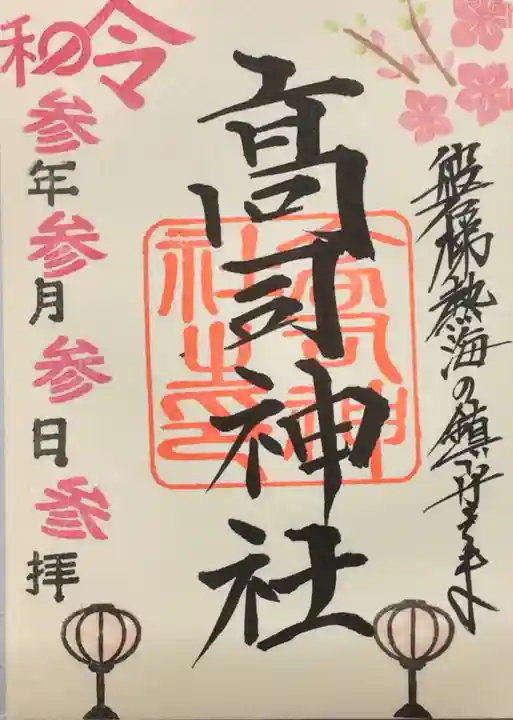 磐梯熱海の鎮守さま
高司神社
高司神社之印
令和
参年参月参日参拝